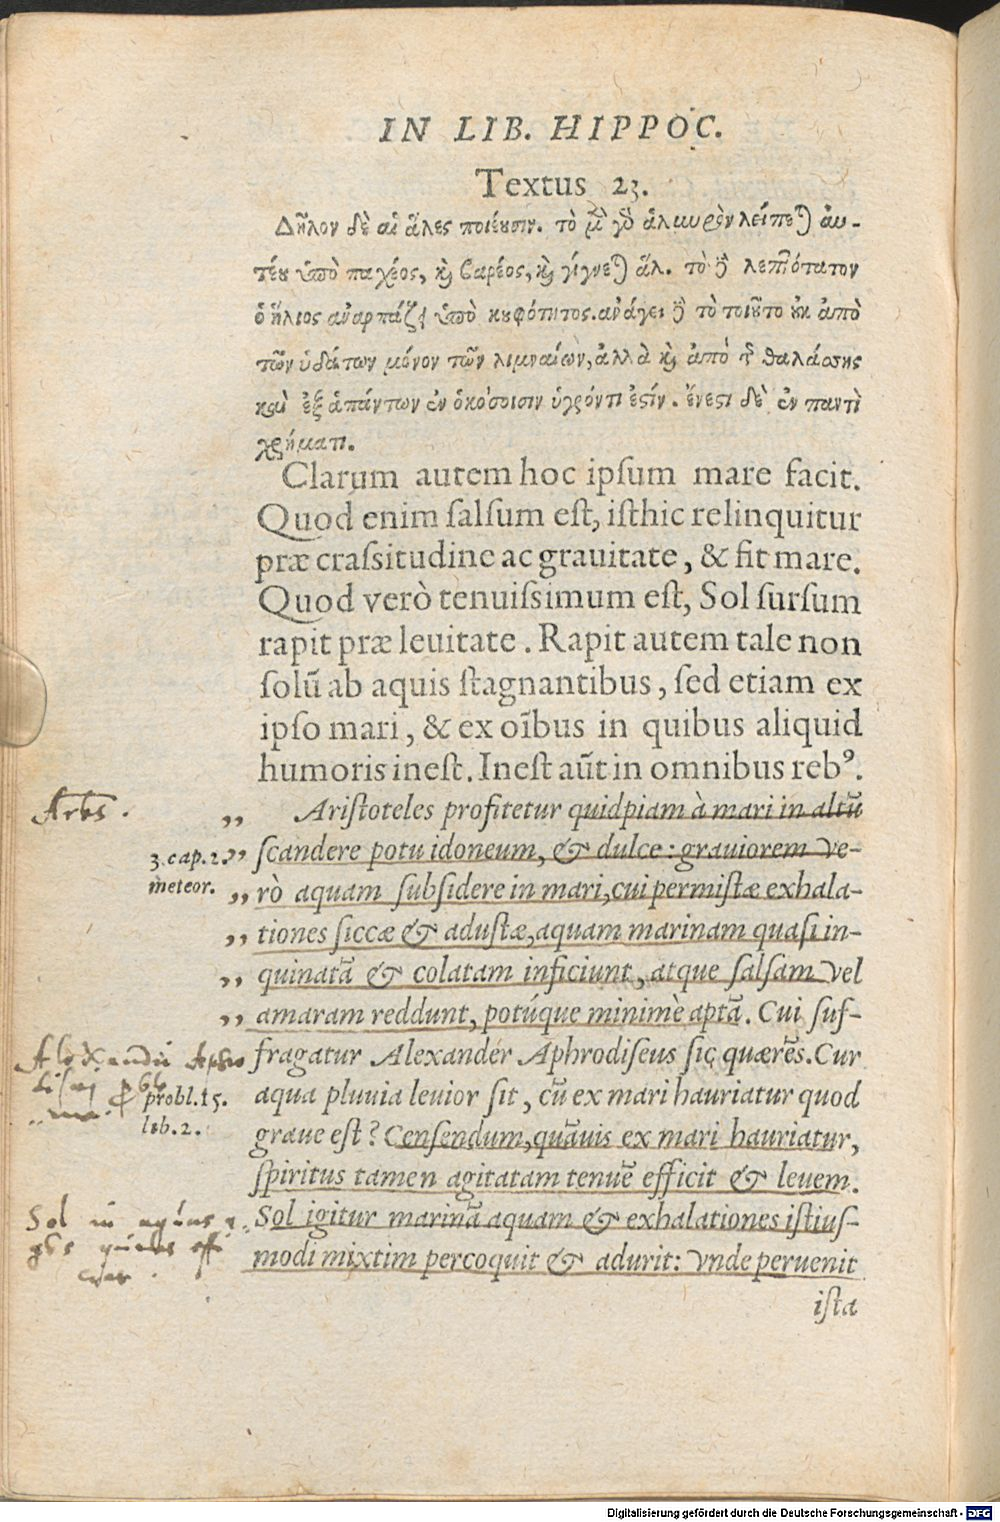 IN LIB. HIPPOC.
Textus 23.
Δῆλον δὲ αἱ ἅλες ποιέουσιν. τὸ μὲν γὰρ ἁλμυρὸν λείπεται αὐ-
τέου ὑπὸ παχέος, καὶ βαρέος, καὶ γίγνεται ἅλ. τὸ δὲ λεπτότατον
ὁ ἥλιος ἀναρπάζει ὑπὸ κουφότητος. ἀνάγει δὲ τὸ τοιοῦτο οὐκ ἀπὸ
τῶν ὑδάτων μόνον τῶν λιμναίων, ἀλλὰ καὶ ἀπὸ τῆς θαλάσσης
καὶ ἐξ ἁπάντων ἐν ὁκόσοισιν ὑγρόν τι ἐστίν. ἔνεστι δὲ ἐν παντὶ
χρήματι.
Clarum autem hoc ipſum mare facit.
Quod enim ſalſum eſt, iſthic relinquitur
præ craſsitudine ac grauitate, & fit mare.
Quod verò tenuiſsimum eſt, Sol ſurſum
rapit præ leuitate. Rapit autem tale non
ſolũ ab aquis ſtagnantibus, ſed etiam ex
ipſo mari, & ex oĩbus in quibus aliquid
humoris ineſt. Ineſt aũt in omnibus rebꝰ.
Ariſtoteles profitetur quidpiam à mari in altũ
3. cap. 2. ſcandere potu idoneum, & dulce: grauiorem ve-
meteor. rò aquam ſubſidere in mari, cui permiſtæ exhala-
tiones ſiccæ & aduſtæ, aquam marinam quaſi in-
quinatã & colatam inficiunt, atque ſalſam vel
amaram reddunt, potúque minimè aptã. Cui ſuf-
fragatur Alexander Aphrodiſeus ſic quærẽs. Cur
probl. 15. aqua pluuia leuior ſit, cũ ex mari hauriatur quod
lib. 2. graue eſt? Cenſendum, quãuis ex mari hauriatur,
ſpiritus tamen agitatam tenuẽ efficit & leuem.
Sol igitur marinã aquam & exhalationes iſtiuſ-
modi mixtim percoquit & adurit: vnde peruenit
iſta
Digitalisierung gefördert durch die Deutsche Forschungsgemeinschaft - DFG